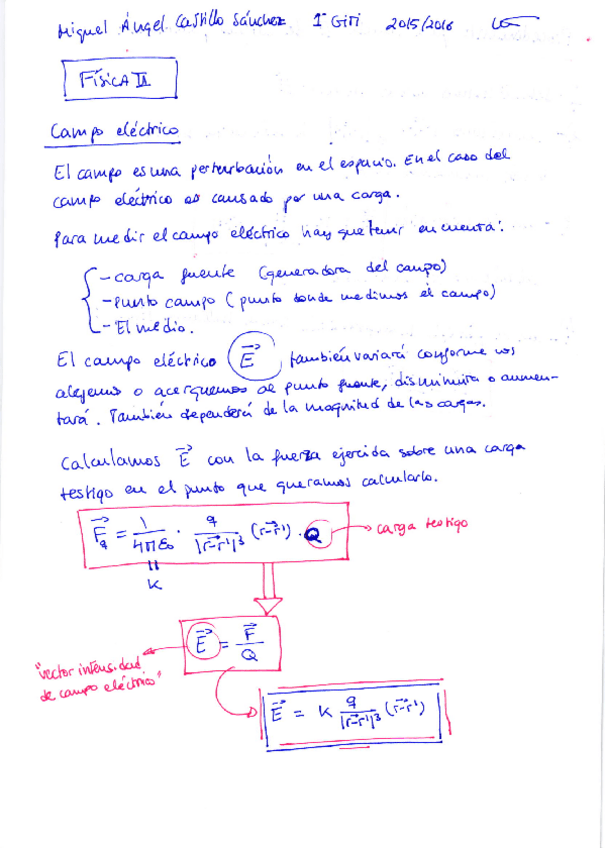 Miguel Ángel Castillo Sánchez 1º GITI 2015/2016
FÍSICA II
Campo eléctrico
El campo es una perturbación en el espacio. En el caso del
campo eléctrico es causado por una carga.
Para medir el campo eléctrico hay que tener en cuenta:
- carga fuente (generadora del campo)
- Punto campo (punto donde medimos el campo)
- El medio.
El campo eléctrico (E⃗), también variará conforme nos
alejemos o acerquemos al punto fuente, disminuirá o aumen-
tará. También dependerá de la magnitud de las cargas.
Calculamos E⃗ con la fuerza ejercida sobre una carga
testigo en el punto que queramos calcularlo.
F⃗q = 1/4πε₀ · q/|r⃗-r⃗'|³ (r⃗-r⃗') · Q → carga testigo
=
K
E⃗ = F⃗/Q
"vector intensidad
de campo eléctrico"
E⃗ = K q/|r⃗-r⃗'|³ (r⃗-r⃗')